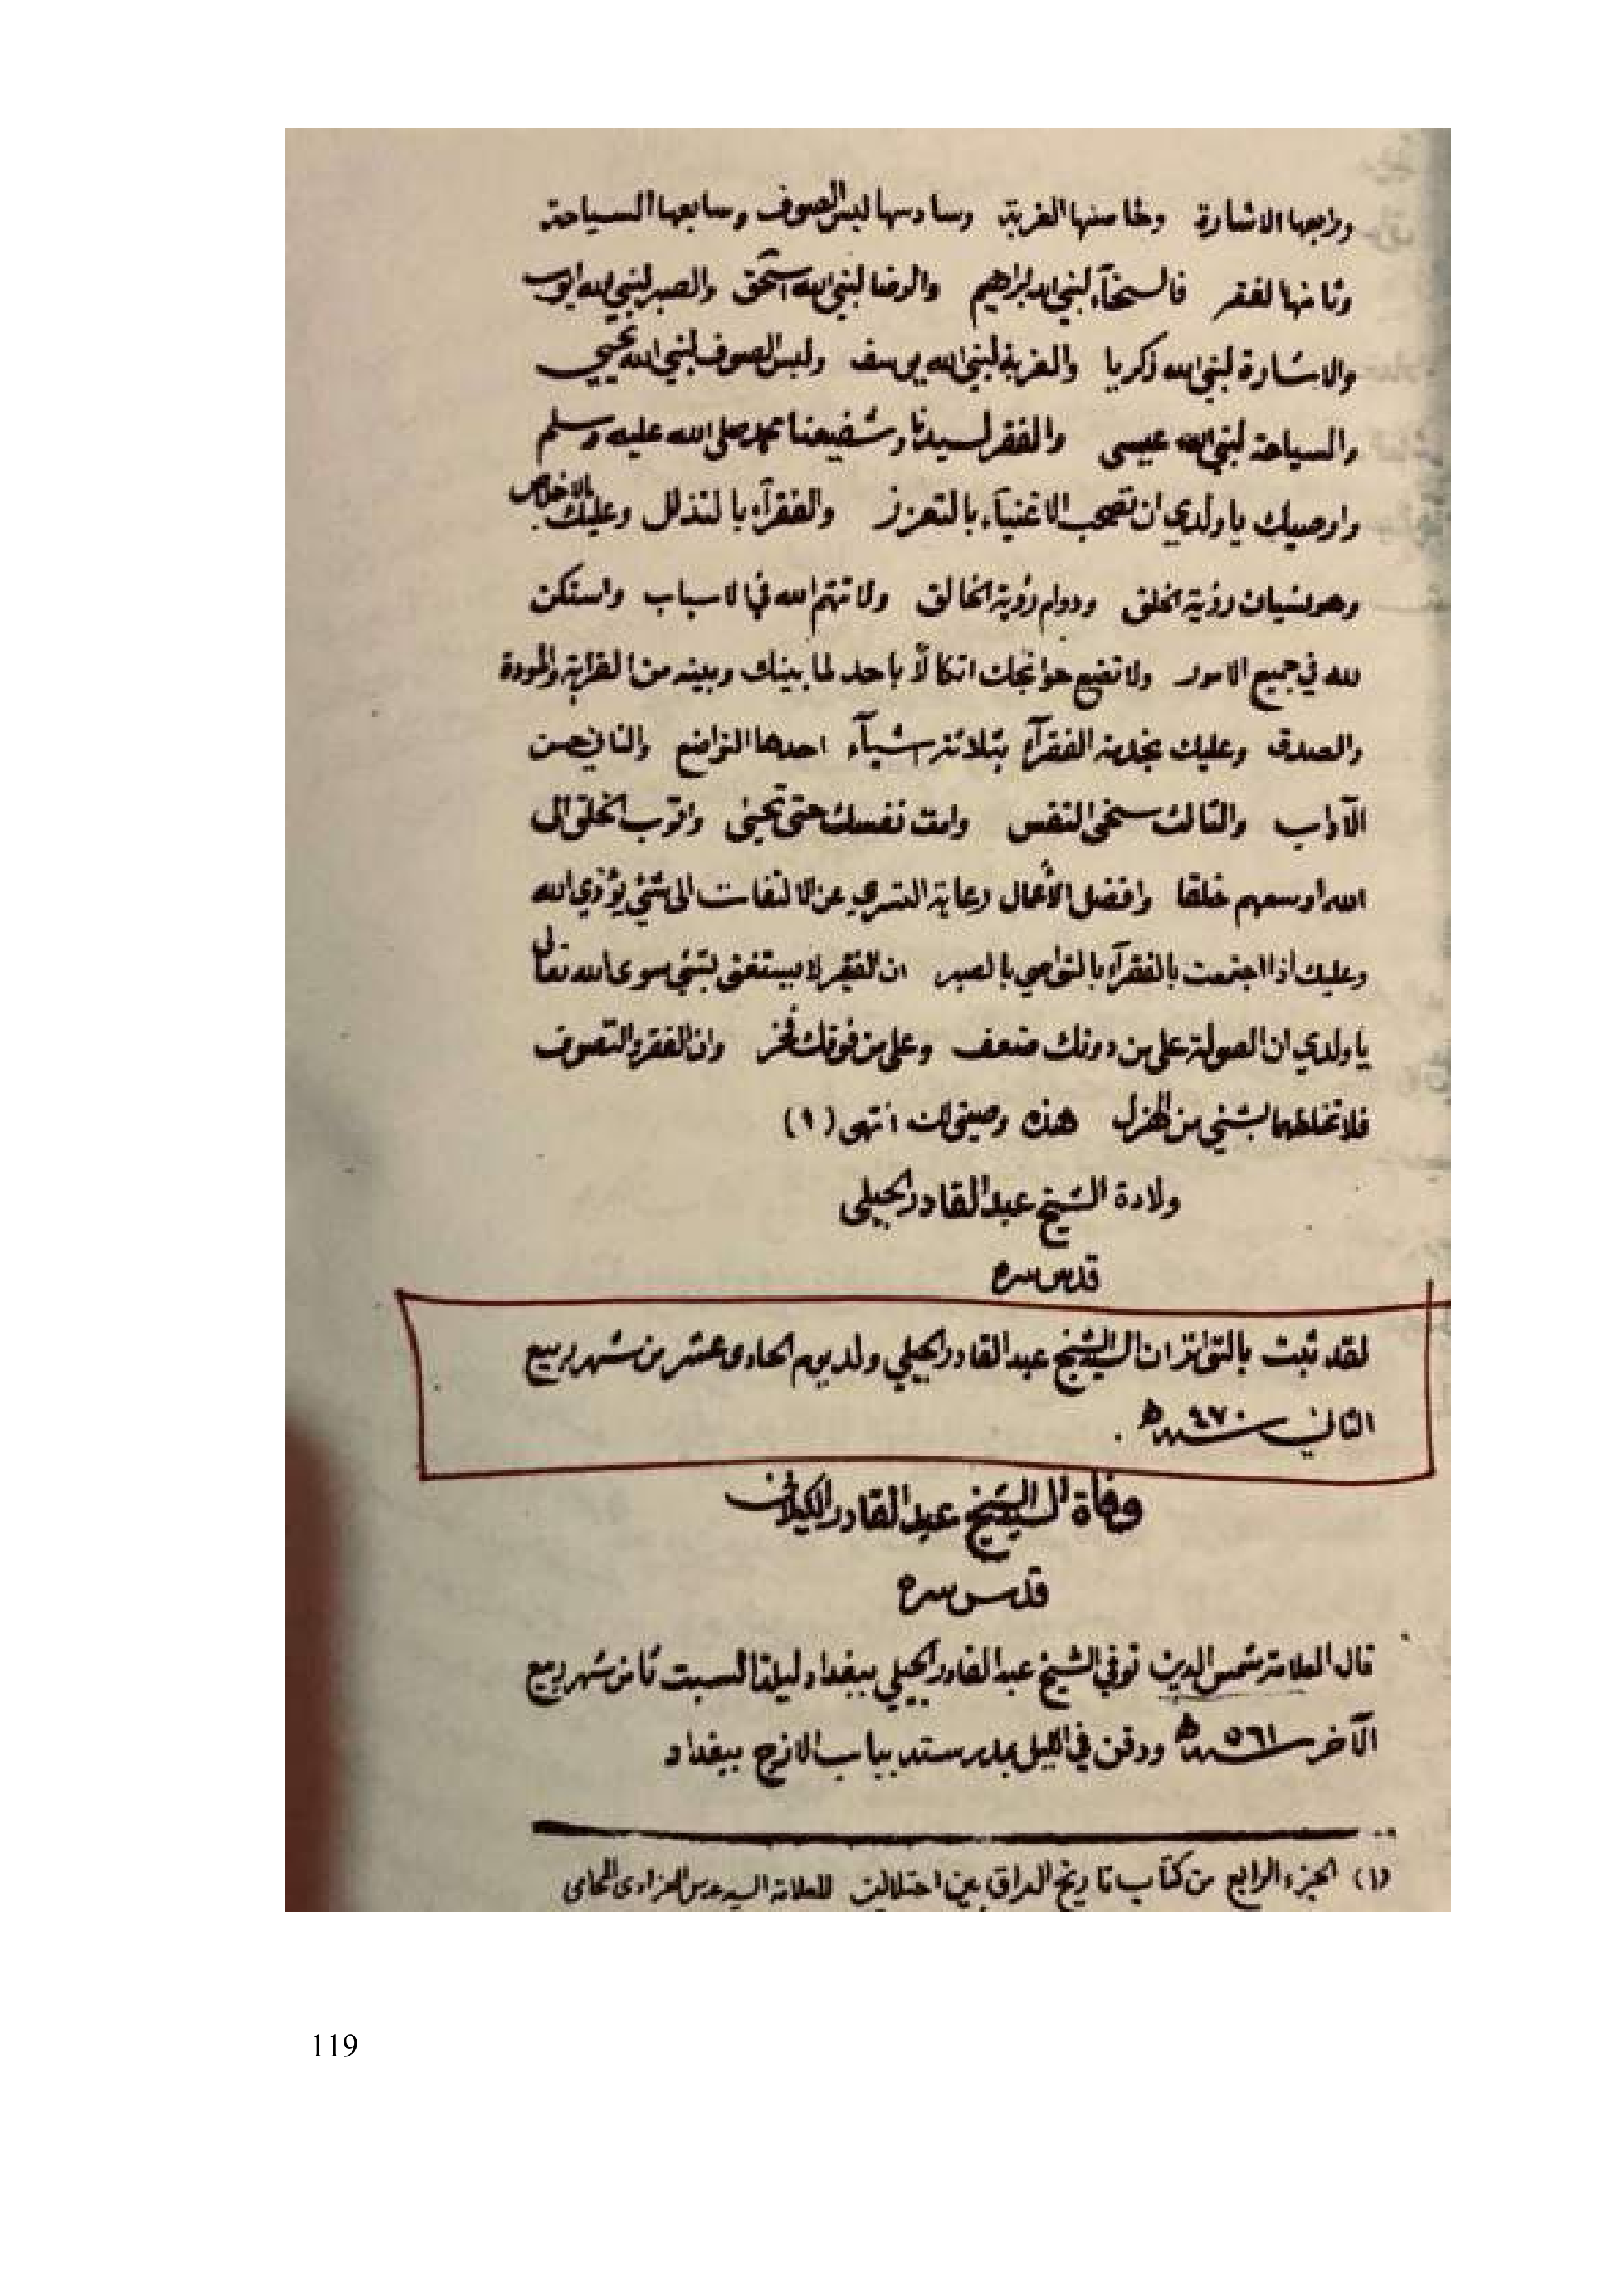 ورابعها الاشارة وخامسها الغربة وسادسها لبس الصوف وسابعها السياحة
وثامنها الفقر فالسخآء لنبي الله ابراهيم والرضا لنبي الله اسحق والصبر لنبي الله ايوب
والاشارة لنبي الله زكريا والغربة لنبي الله يوسف ولبس الصوف لنبي الله يحيى
والسياحة لنبي الله عيسى والفقر لسيدنا وشفيعنا محمد صلى الله عليه وسلم
واوصيك يا ولدي ان تصحب الاغنيآء بالتعزز والفقرآء بالتذلل وعليك بالاخلاص
وهو نسيان رؤية الخلق ودوام رؤية الخالق ولا تتهم الله في الاسباب واستكن
لله في جميع الامور ولا تضيع حوائجك اتكالاً باحد لما بينك وبينه من القرابة والمودة
والصدق وعليك بخدمة الفقرآء بثلاثة اشيآء احدها التواضع والثاني حسن
الآداب والثالث سخى النفس وامت نفسك حتى تحيى واقرب الخلق الى
الله اوسعهم خلقا وافضل الأعمال رعاية السر عن الالتفات الى شئ يؤذي الله
وعليك اذا اجتمعت بالفقرآء بالتواصي بالصبر ان الفقير لا يستغنى بشئ سوى الله تعالى
يا ولدي ان الصولة على من دونك ضعف وعلى من فوقك فخر وان الفقر والتصوف
فلا تخلطهما بشئ من الهزل هذه وصيتي لك انتهى (١)
ولادة الشيخ عبد القادر الجيلي
قدس سره
لقد ثبت بالتواتر ان السيد الشيخ عبد القادر الجيلي ولد يوم الحادى عشر من شهر ربيع
الثاني سنة ٤٧٠ هـ .
وفاة السيد الشيخ عبد القادر الكيلاني
قدس سره
قال العلامة شمس الدين توفي الشيخ عبد القادر الجيلي ببغداد ليلة السبت ثامن شهر ربيع
الآخر سنة ٥٦١ هـ ودفن في الليل بمدرسته بباب الازج ببغداد
(١) الجزء الرابع من كتاب تاريخ العراق بين احتلالين للعلامة السيد عباس العزاوى المحامى
119